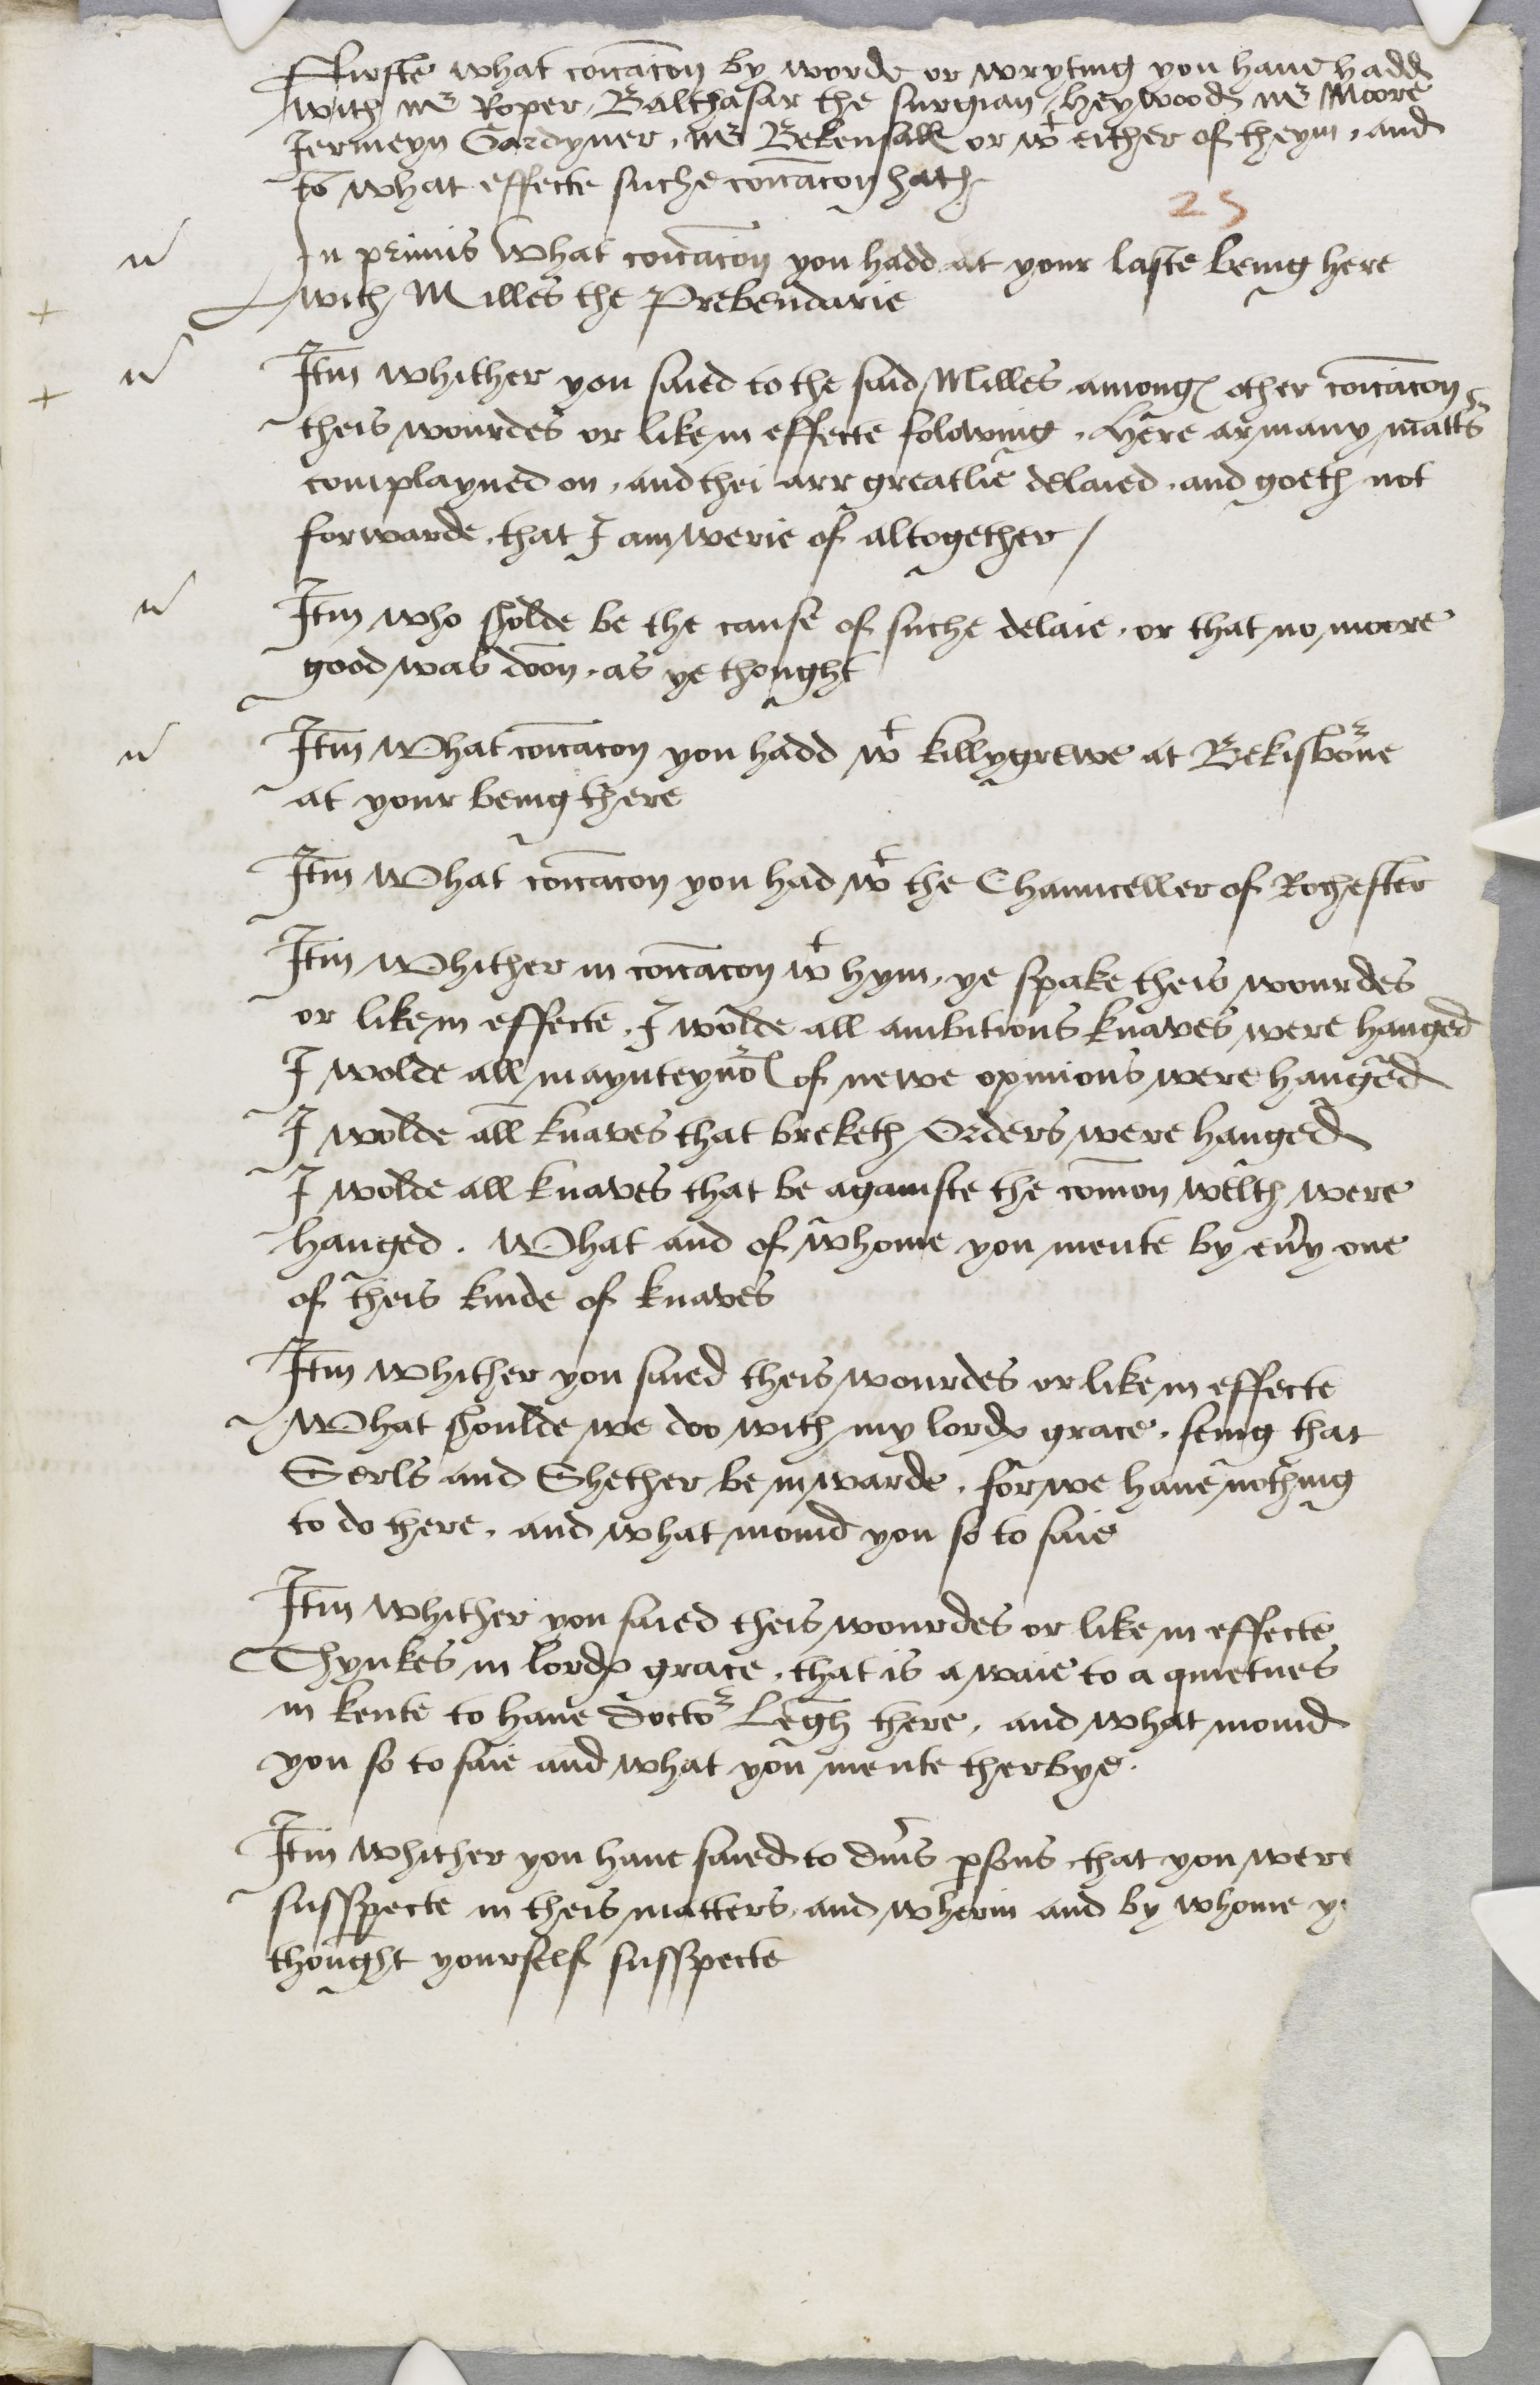 Firste what coïcacon by worde or wryting you haue hadd
with mr Roper, Balthasar the surgian, Heywood, mr Moore
Jermeyn Gardyner, mr Bekensall or wt either of theym, and
to what effecte suche coïcacon hath
25
In primis What coïcacion you hadd at your laste being here
with Milles the Prebendarie
Itm whither you saied to the said Milles among other coïcacon
theis wourdes or like in effecte folowing. Here ar many matts
complayned on, and thei arr greatlie delaied, and goeth not
forwarde, that I am werie of altogether /
Itm who sholde be the cause of suche delaie, or that no moore
good was doon, as ye thought
Itm What coïcacon you hadd wt Killygrewe at Bekisborne
at your being there
Itm What coïcacon you had wt the Chaunceller of Rochester
Itm Whither in coïcacon wt hym, ye spake theis wourdes
or like in effecte, I wolde all ambitious knaves were hanged
I wolde all maynteynors of newe opinions were hanged
I wolde all knaves that breketh Orders were hanged
I wolde all knaves that be againste the comon welth were
hanged. What and of whome you mente by eury one
of theis kinde of knaves
Itm whither you saied theis wourdes or like in effecte
What shoulde we doo with my lordes grace, seing that
Serls and Shether be in warde, for we haue nothing
to do there, and what moued you so to saie
Itm whither you saied theis wourdes or like in effecte
Thynkes m lordes grace, that is a waie to a quietnes
in Kente to haue Doctor Legh there, and what moued
you so to saie and what you mente therbye.
Itm whither you haue saied to diuers psons, that you were
susspecte in theis matters, and wherin and by whome y
thought yourself susspecte